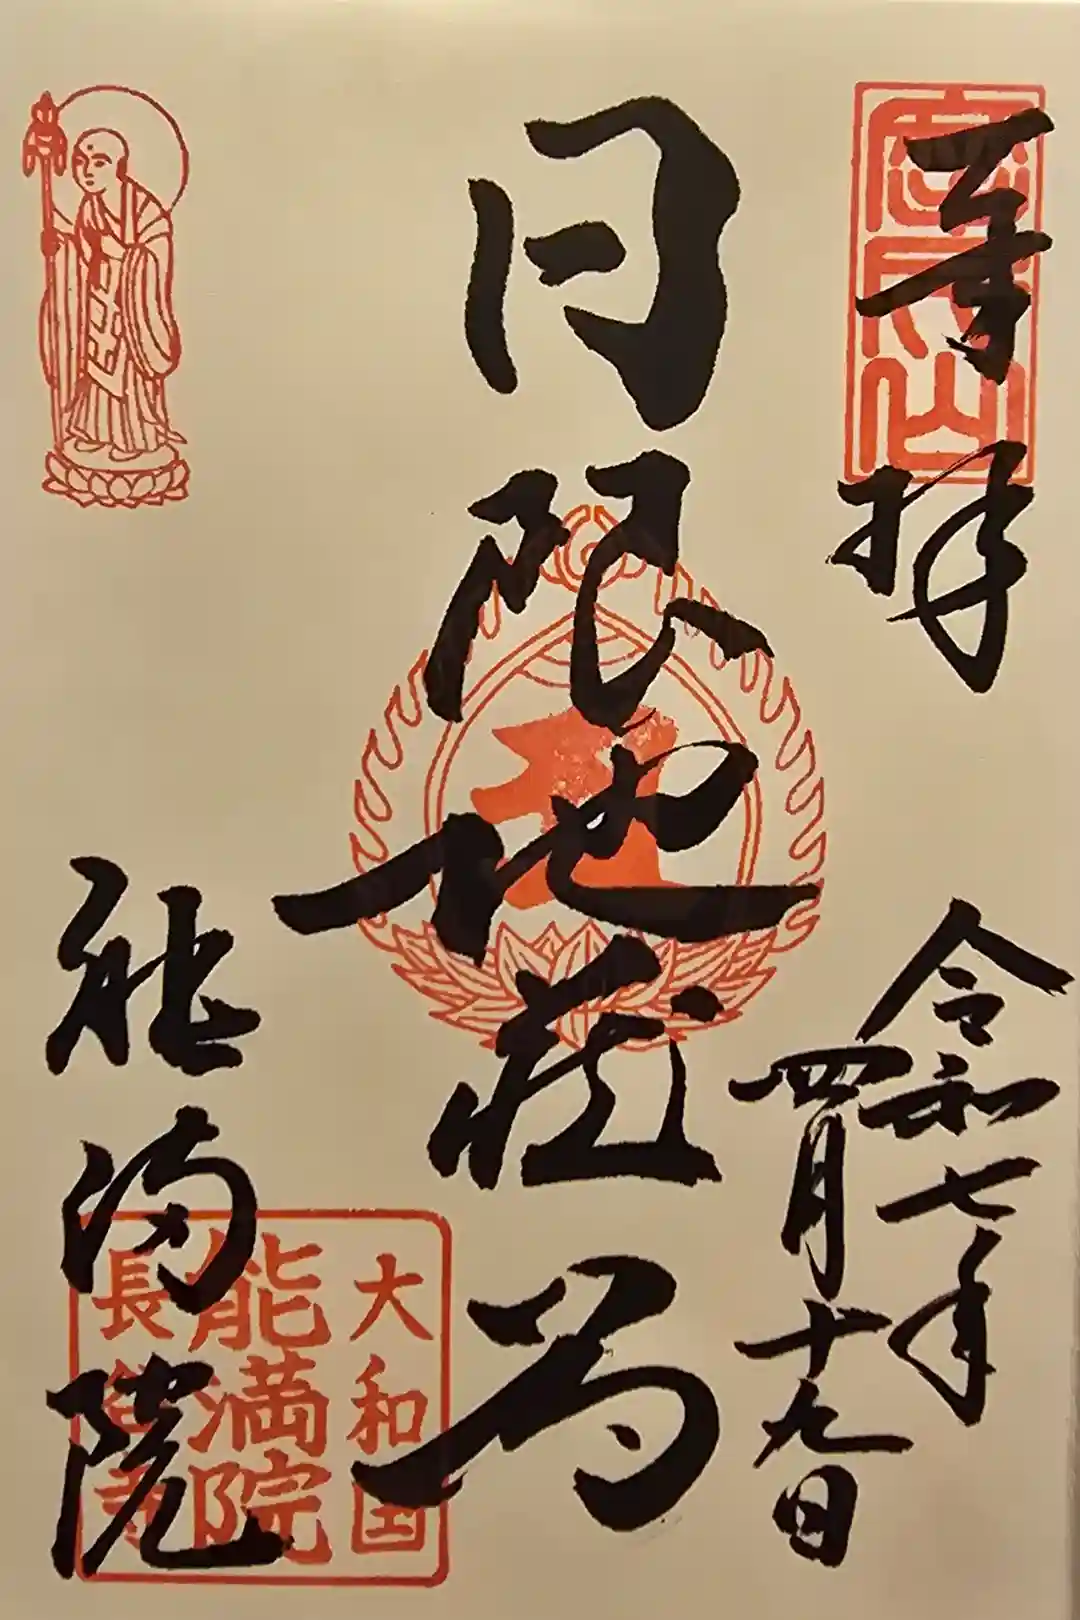 奉拝
令和七年
四月十九日
日限地蔵尊
能満院
大和国
能満院
長谷寺